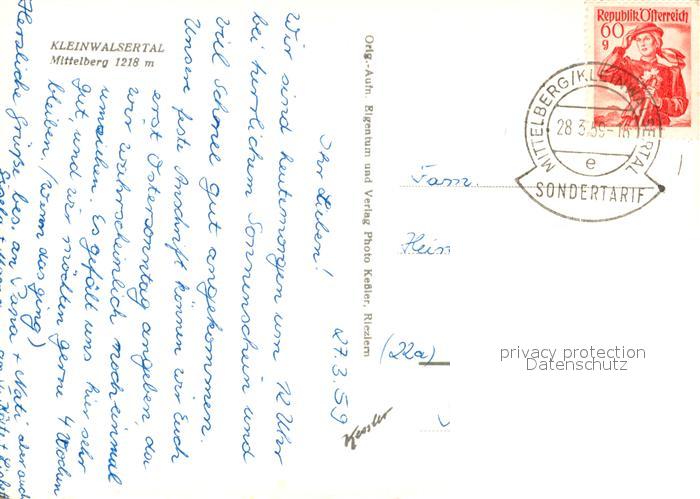 KLEINWALSERTAL
Mittelberg 1218 m
27.3.59
Ihr Lieben!
Wir sind heutemorgen um 12 Uhr
bei herrlichem Sonnenschein und
viel Schnee gut angekommen.
Unsere feste Anschrift können wir Euch
erst Ostersonntag angeben, da
wir wahrscheinlich noch einmal
umziehen. Es gefällt uns hier sehr
gut, und wir möchten gerne 4 Wochen
bleiben. (wenn das ging)
Herzliche Grüße bes. an Papa + Nati aber auch
Orig.-Aufn. Eigentum und Verlag Photo Keßler, Riezlern
Kessler
Republik Österreich
60
g
MITTELBERG/KLEINWALSERTAL
28.3.59-18
e
SONDERTARIF
Fam.
Hein
(22a)
privacy protection
Datenschutz